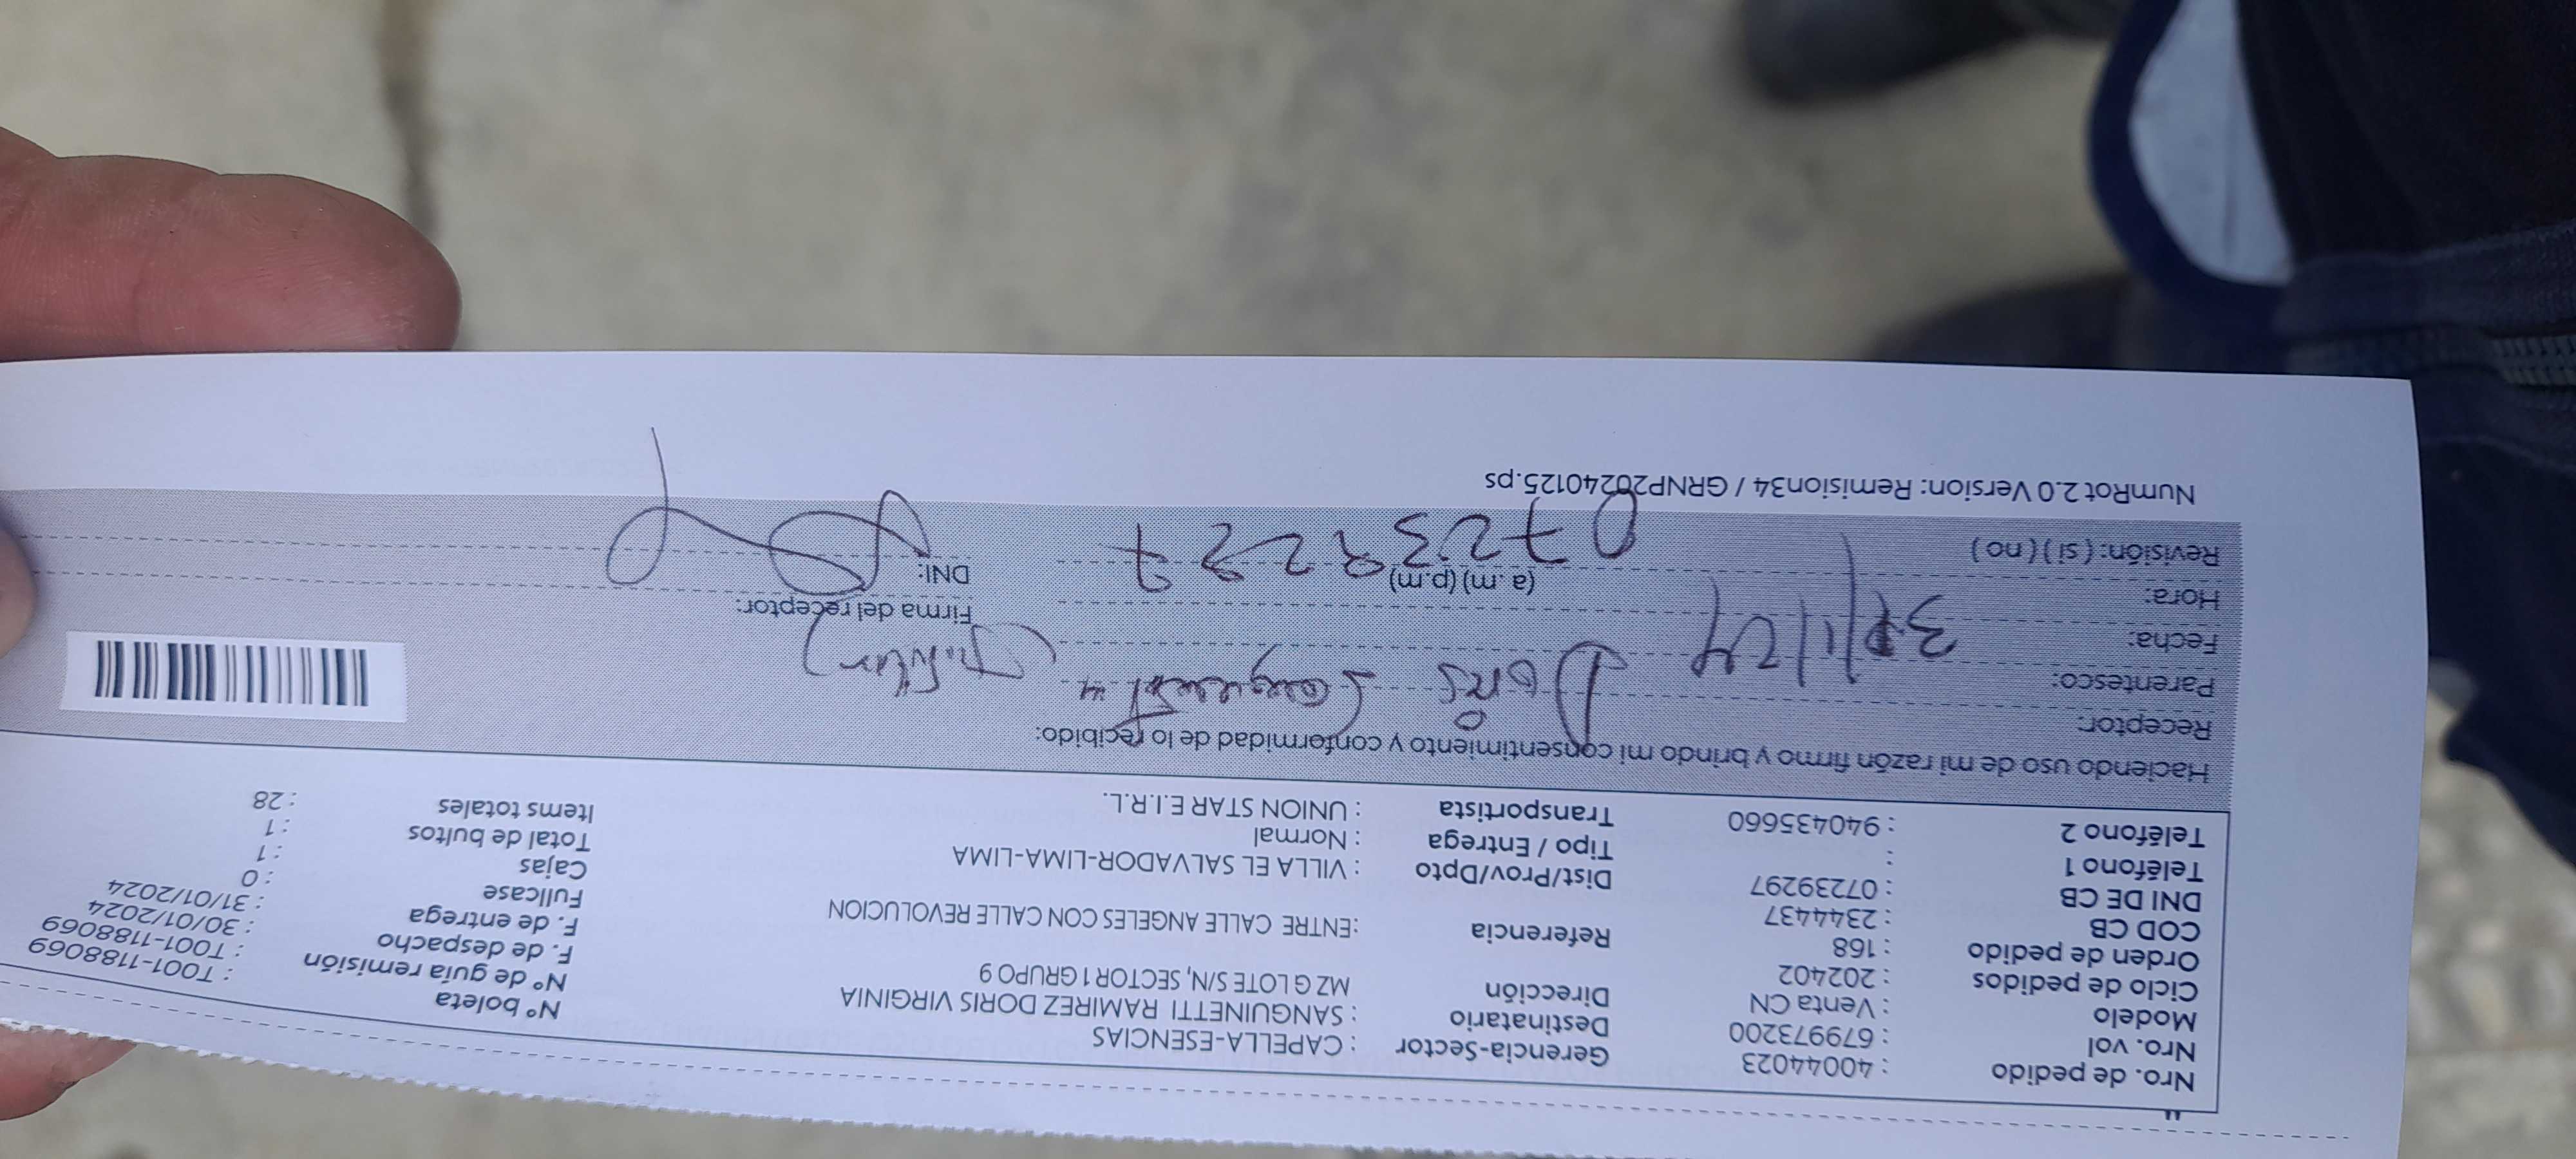 Nro. de pedido : 40044023 Gerencia-Sector : CAPELLA-ESENCIAS Nº boleta : T001-1188069
Nro. vol : 679973200 Destinatario : SANGUINETTI RAMIREZ DORIS VIRGINIA Nº de guía remisión : T001-1188069
Modelo : Venta CN Dirección MZ G LOTE S/N, SECTOR 1 GRUPO 9 F. de despacho : 30/01/2024
Ciclo de pedidos : 202402 F. de entrega : 31/01/2024
Orden de pedido : 168 Referencia :ENTRE CALLE ANGELES CON CALLE REVOLUCION Fullcase : 0
COD CB : 2344437 Cajas : 1
DNI DE CB : 07239297 Dist/Prov/Dpto : VILLA EL SALVADOR-LIMA-LIMA Total de bultos : 1
Teléfono 1 : Tipo / Entrega : Normal Items totales : 28
Teléfono 2 : 940435660 Transportista : UNION STAR E.I.R.L.
Haciendo uso de mi razón firmo y brindo mi consentimiento y conformidad de lo recibido:
Receptor: Doris
Parentesco: (Titular)
Fecha: 31/1/24 Firma del receptor:
Hora: (a. m) (p.m) DNI:
Revisión: ( si ) ( no )
NumRot 2.0 Version: Remision34 / GRNP20240125.ps